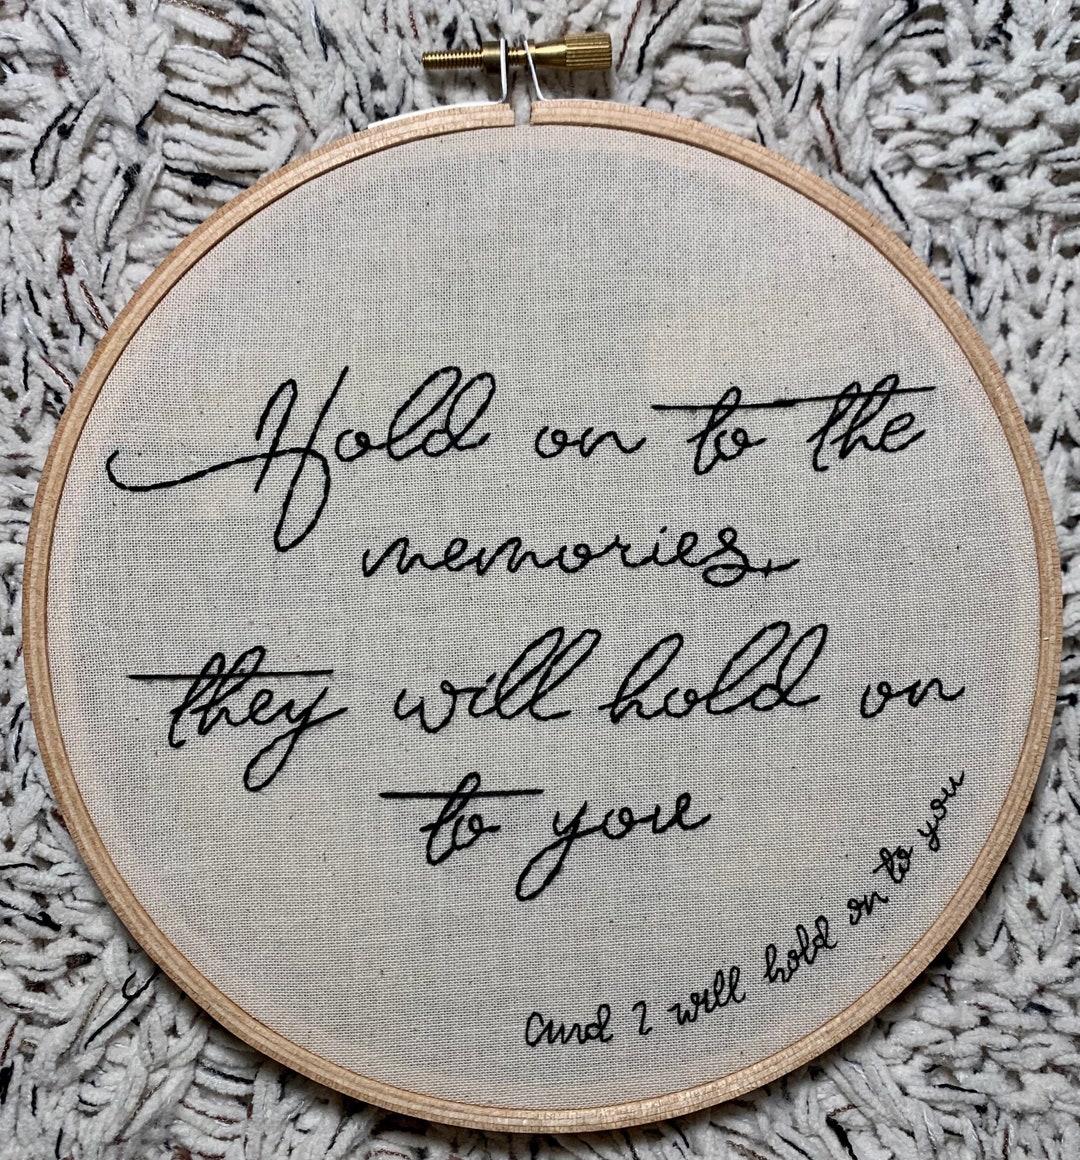 Hold on to the
memories,
they will hold on
to you
and I will hold on to you